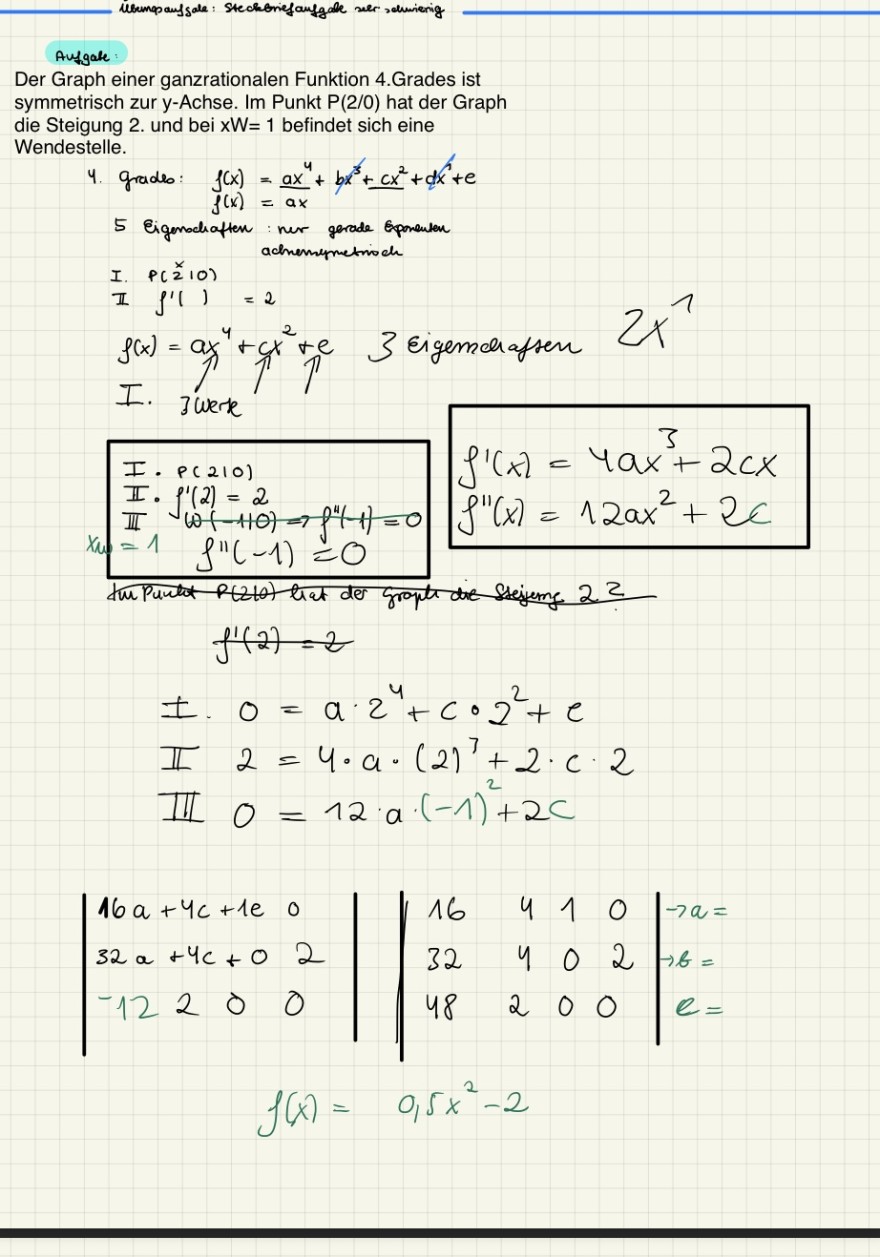 Übungsaufgabe: Steckbriefaufgabe sehr schwierig
Aufgabe:
Der Graph einer ganzrationalen Funktion 4.Grades ist
symmetrisch zur y-Achse. Im Punkt P(2/0) hat der Graph
die Steigung 2. und bei xW= 1 befindet sich eine
Wendestelle.
4. grades: f(x) = ax⁴ + bx³ + cx² + dx¹ + e
f(x) = ax
5 Eigenschaften : nur gerade Exponenten
achsensymetrisch
x
I. P(2|0)
II f'( ) = 2
f(x) = ax⁴ + cx² + e 3 Eigenschaften 2x¹
I. 3 Werte
I. P(2|0)
II. f'(2) = 2
III W(-1|0) => f''(-1) = 0
xw = 1 f''(-1) = 0
f'(x) = 4ax³ + 2cx
f''(x) = 12ax² + 2c
Im Punkt P(2|0) hat der Graph die Steigung 2 ?
f'(2) = 2
I. 0 = a · 2⁴ + c · 2² + e
II 2 = 4 · a · (2)³ + 2 · c · 2
III 0 = 12 · a · (-1)² + 2c
16a + 4c + 1e 0
32a + 4c + 0 2
-12 2 0 0
16 4 1 0 → a =
32 4 0 2 → b =
48 2 0 0 e =
f(x) = 0,5x² - 2